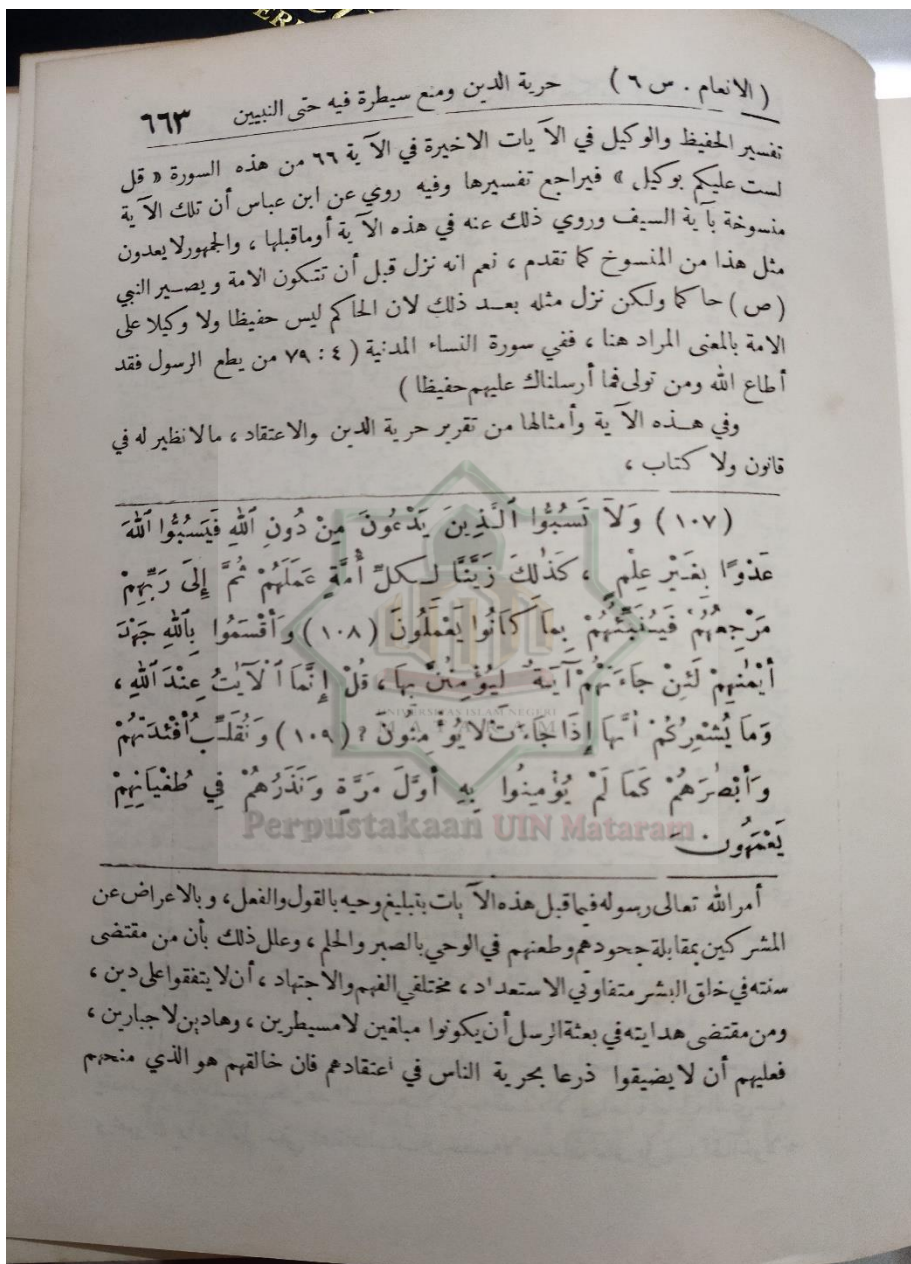 ( الانعام . س ٦ ) حرية الدين ومنع سيطرة فيه حتى النبيين ٦٦٣
تفسير الحفيظ والوكيل في الآيات الاخيرة في الآية ٦٦ من هذه السورة « قل
لست عليكم بوكيل » فيراجع تفسيرها وفيه روي عن ابن عباس أن تلك الآية
منسوخة بآية السيف وروي ذلك عنه في هذه الآية أوماقبلها ، والجمهورلا يعدون
مثل هذا من المنسوخ كما تقدم ، نعم انه نزل قبل أن تتكون الامة ويصير النبي
(ص) حاكما ولكن نزل مثله بعد ذلك لان الحاكم ليس حفيظا ولا وكيلا على
الامة بالمعنى المراد هنا ، ففي سورة النساء المدنية ( ٤ : ٧٩ من يطع الرسول فقد
أطاع الله ومن تولى فما أرسلناك عليهم حفيظا )
وفي هذه الآية وأمثالها من تقرير حرية الدين والاعتقاد ، مالا نظير له في
قانون ولا كتاب ،
(١٠٧) وَلاَ تَسُبُّوا ٱلَّذِينَ يَدْعُونَ مِنْ دُونِ ٱللهِ فَيَسُبُّوا ٱللهَ
عَدْوًا بِغَيْرِ عِلْمٍ ، كَذٰلِكَ زَيَّنَّا لِكلِّ أُمَّةٍ عَمَلَهُمْ ثُمَّ إِلَى رَبِّهِمْ
مَرْجِعُهُمْ فَيُنَبِّئُهُمْ بِمَا كَانُوا يَعْمَلُونَ (١٠٨) وَأَقْسَمُوا بِٱللهِ جَهْدَ
أَيْمٰنِهِمْ لَئِنْ جَاءَتْهُمْ آيَةٌ لَيُؤْمِنُنَّ بِهَا ، قُلْ إِنَّمَا ٱلْآيٰتُ عِنْدَ ٱللهِ ،
وَمَا يُشْعِرُكُمْ أَنَّهَا إِذَا جَاءَتْ لاَ يُؤْمِنُونَ ؟ (١٠٩) وَنُقَلِّبُ أَفْئِدَتَهُمْ
وَأَبْصٰرَهُمْ كَمَا لَمْ يُؤْمِنُوا بِهِ أَوَّلَ مَرَّةٍ وَنَذَرُهُمْ فِي طُغْيَانِهِمْ
يَعْمَهُونَ
أمر الله تعالى رسوله فيما قبل هذه الآيات بتبليغ وحيه بالقول والفعل ، وبالاعراض عن
المشركين بمقابلة جحودهم وطعنهم في الوحي بالصبر والحلم ، وعلل ذلك بأن من مقتضى
سنته في خلق البشر متفاوتي الاستعداد ، مختلفي الفهم والاجتهاد ، أن لا يتفقوا على دين ،
ومن مقتضى هدايته في بعثة الرسل أن يكونوا مبلغين لا مسيطرين ، وهادين لا جبارين ،
فعليهم أن لا يضيقوا ذرعا بحرية الناس في اعتقادهم فان خالقهم هو الذي منحهم
UNIVERSITAS ISLAM NEGERI
MATARAM
Perpustakaan UIN Mataram